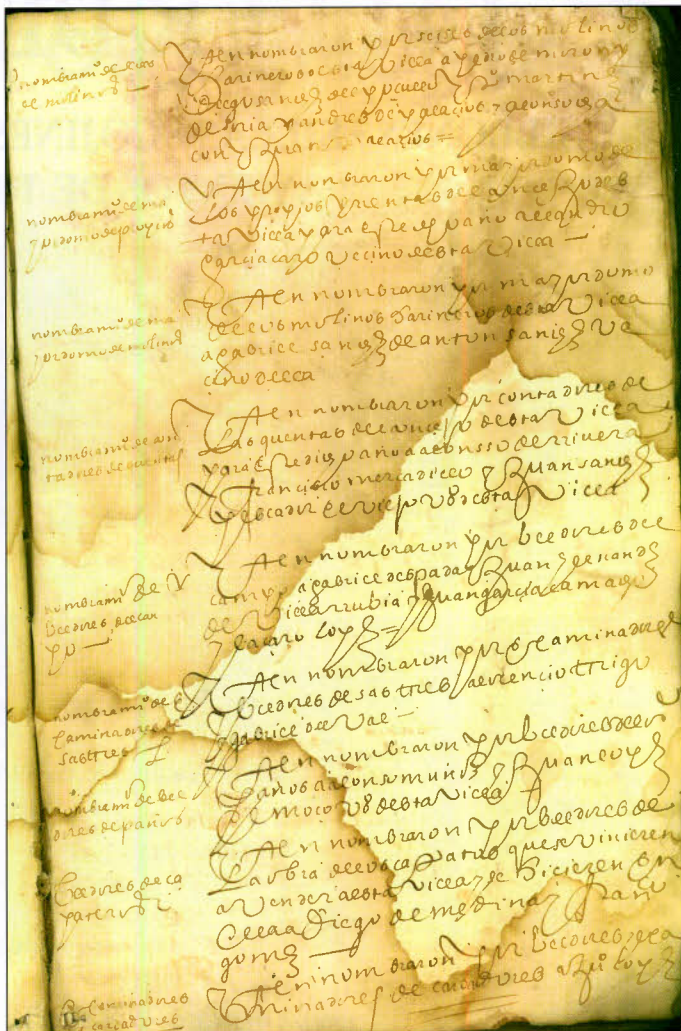 nombramiº de
de molinos
Yten nombraron por de los molinos
harineros de esta villa a pedro de
diego sanchez del martin
de soria y andres de palacios y alonso de la
con y Juan de palacios =
nombramiº de ma
yordomo de propios
Yten nombraron por mayordomo de
los propios y rentas del concejo de es
ta villa para este año a
garcia caro vecino desta villa —
nombramiº de ma
yordomo de molinos
Yten nombraron por mayordomo
de los molinos harineros desta villa
a gabriel sanchez de anton sanchez ve
cino della
nombramiº de con
tadores de quentas
Yten nombraron por contadores de
las quentas del concejo desta villa
para este dicho año a alonso de rrivera
francisco mercadillo y Juan sanchez
pescador el viejo vºs desta villa
nombramiº de v
beedores del can
po —
Yten nombraron por beedores del
campo a gabriel de espada y Juan fernandez
de villarrubia y Juan garcia
y lazaro lopez =
nombramiº de e
saminadores de
sastres
Yten nombraron por esaminadores
beedores de sastres a lorencio trigo
y gabriel del val —
nombramiº de bee
dores de paños
Yten nombraron por beedores de los
paños a alonso muñoz y Juan lopez
el moço vºs desta villa
beedores de ca
pateros
Yten nombraron por beedores de
la obra de los çapatos que se vinieren
a vender a esta villa y se hicieren en
ella a diego de medina y
gomez —
Esaminadores
cardadores
Yten nombraron por beedores
minadores de cardadores a lopez